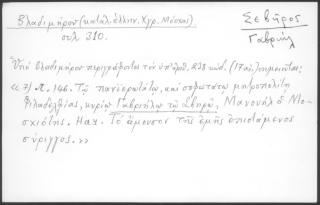 Βλαδιμήρου (κατάλ. ἑλλην. Χγρ. Μόσχας)
σελ 310.
Σεβῆρος
Γαβριήλ
Ὑπὸ Βλαδιμήρου περιγράφεται τοῦ ὑπ' ἀριθ. 238 κώδ. (17 αἰ.) σημειοῦται:
«7/ Λ. 146. Τῷ πανιερωτάτῳ, καὶ σοφωτάτῳ μητροπολίτῃ
Φιλαδελφίας, κυρίῳ Γαβριήλῳ τῷ Σεβήρῳ, Μανουὴλ ὁ Μο-
σχιώτης. Нач. Τὸ ἄμουσον τῆς ἐμῆς ἐπιστάμενος
σύριγγος.»